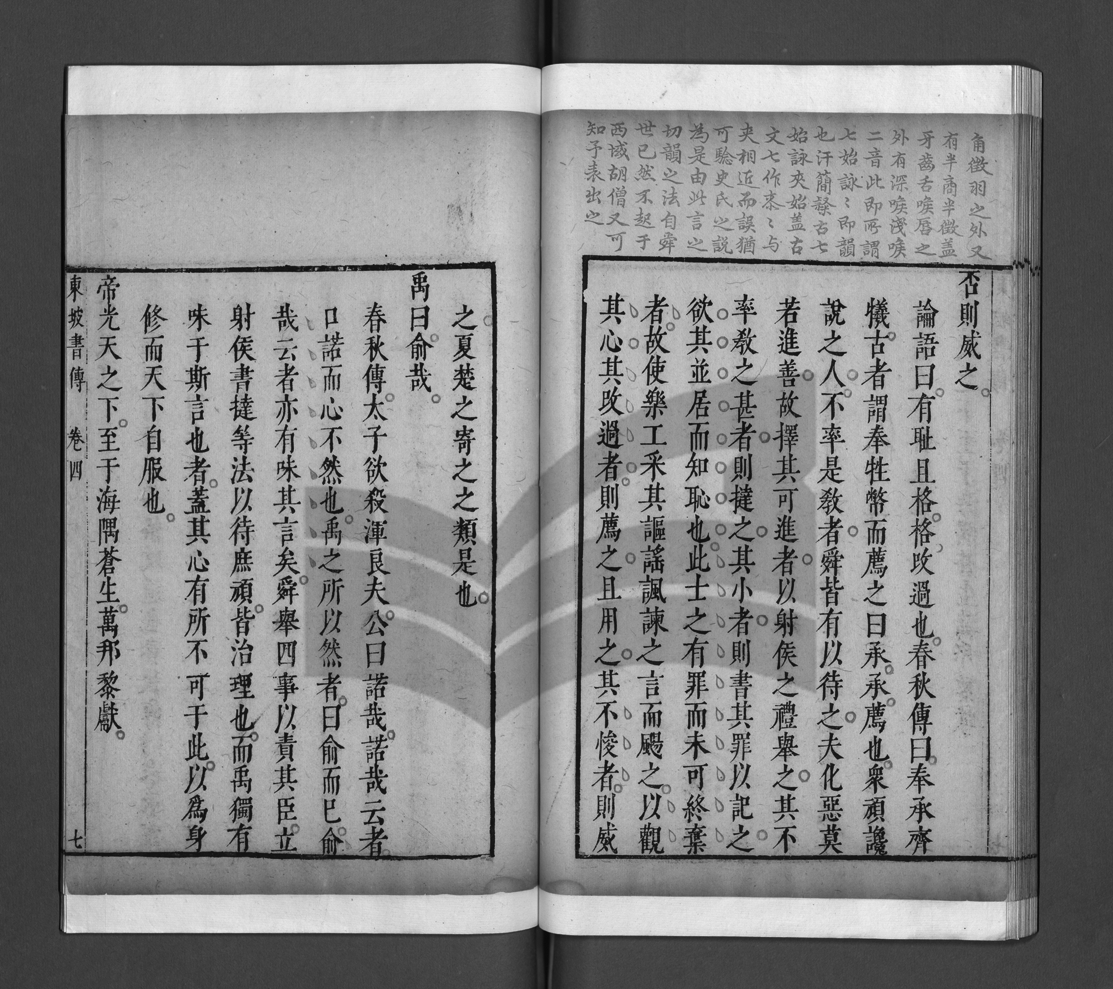 角徵羽之外又
有半商半徵蓋
牙齒舌喉唇之
外有深喉淺喉
二音此即所謂
七始詠〻即韻
也汗簡隸古七
始詠夾始蓋古
文七作桼〻与
夾相近而誤猶
可驗史氏之說
為是由此言之
切韻之法自舜
世已然不起于
西域胡僧又可
知予表出之
否則威之。
論語曰。有耻且格。格改過也。春秋傳曰。奉承齊
犧。古者謂奉牲幣而薦之曰承。承薦也。衆頑讒
說之人。不率是敎者。舜皆有以待之。夫化惡莫
若進善。故擇其可進者。以射侯之禮舉之。其不
率敎之甚者。則撻之。其小者。則書其罪以記之。
欲其並居而知恥也。此士之有罪而未可終棄
者。故使樂工采其謳謠諷諫之言而颺之。以觀
其心。其改過者。則薦之且用之。其不悛者。則威
之。夏楚之寄之之類是也。
禹曰。俞哉。
春秋傳。太子欲殺渾良夫。公曰諾哉。諾哉云者。
口諾而心不然也。禹之所以然者。曰俞而已。俞
哉云者。亦有味其言矣。舜舉四事以責其臣。立
射侯書撻等法以待庶頑。皆治理也。而禹獨有
味于斯言也者。蓋其心有所不可于此。以爲身
修而天下自服也。
帝光天之下。至于海隅蒼生。萬邦黎獻。
東坡書傳 卷四 七